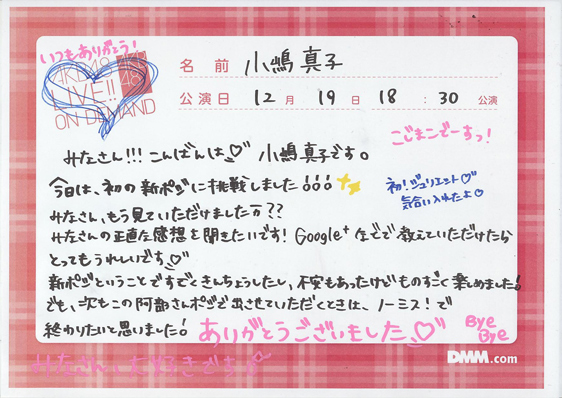 いつもありがとう!
AKB48
LIVE!!
ON DEMAND
名前 小嶋真子
公演日 12月 19日 18:30公演
こじまこでーすっ!
みなさん!!! こんばんは♡ 小嶋真子です。
今日は、初の新ポジに挑戦しました!!!
初!ジュリエット♡
気合い入れたよ♡
みなさん、もう見ていただけましたか??
みなさんの正直な感想を聞きたいです! Google+などで教えていただけたら
とってもうれしいです♡
新ポジということですごくきんちょうしたし、不安もあったけどものすごく楽しめました!
でも、次もこの阿部さんポジで出させていただくときは、ノーミス!で
終わりたいと思いました!
ありがとうございました♡
Bye
Bye
DMM.com